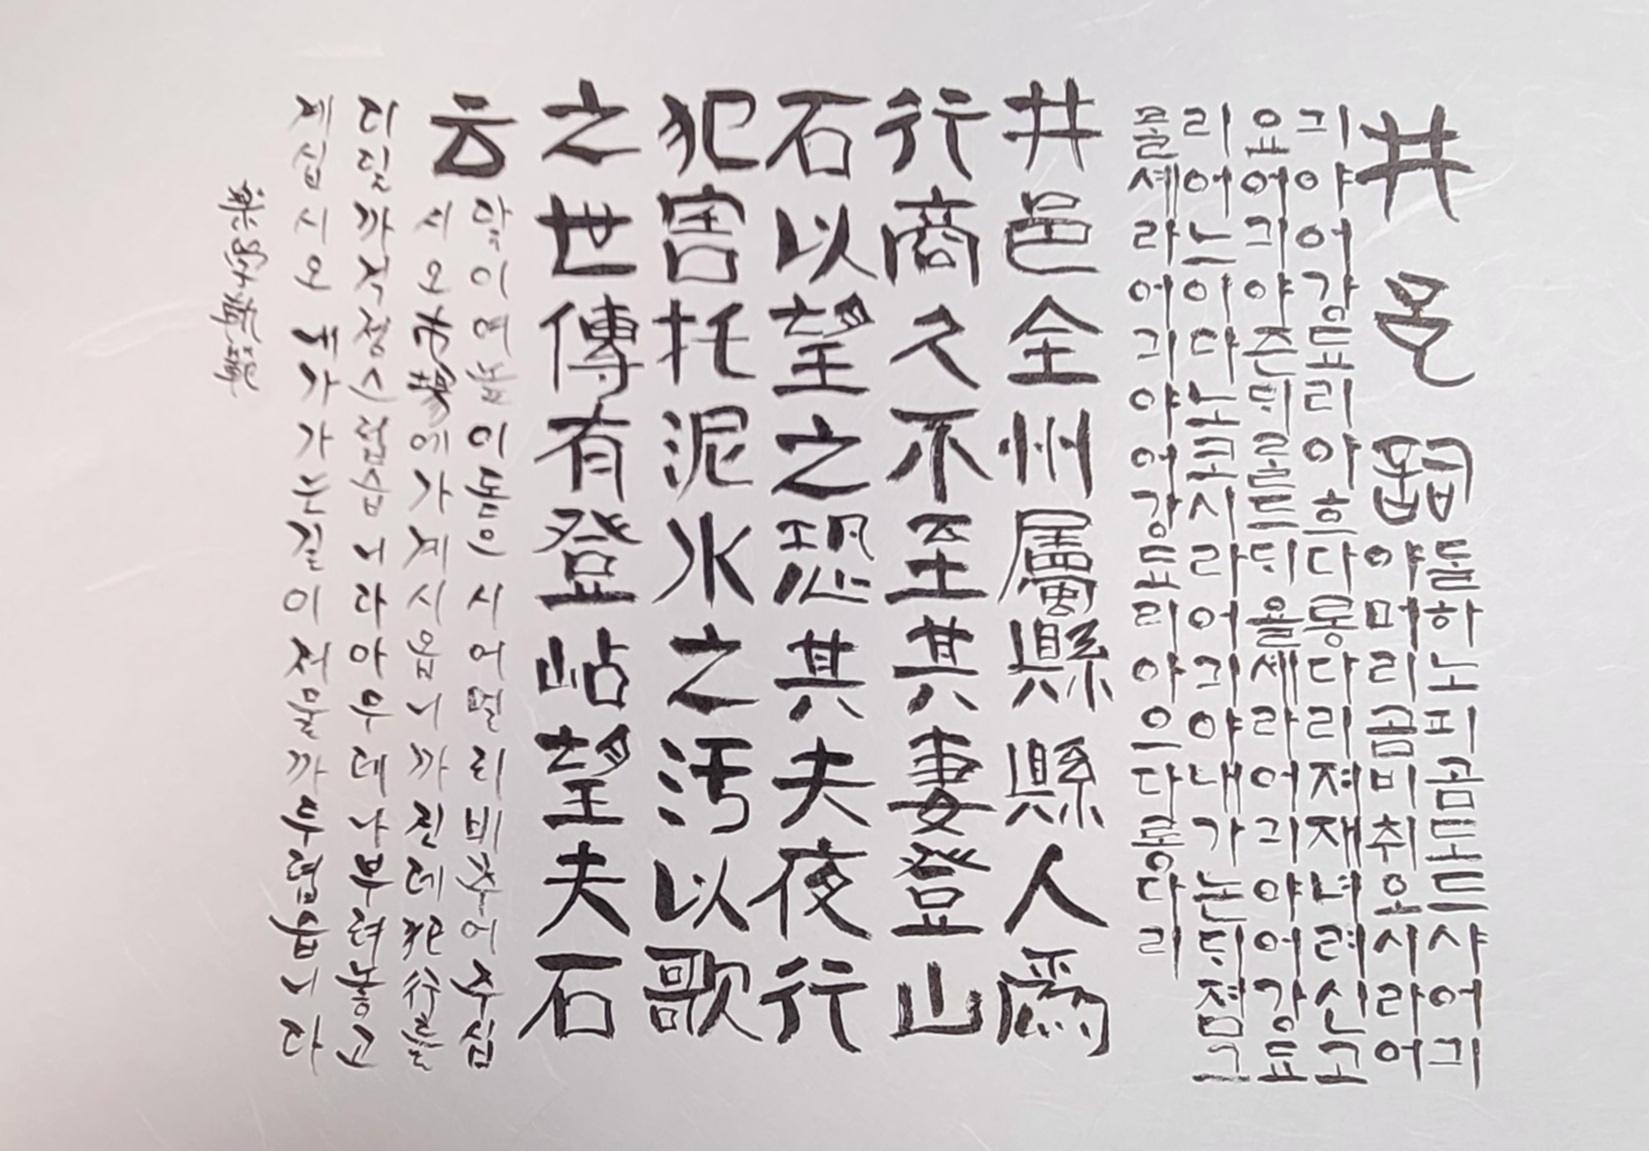 井邑詞
ᄃᆞᆯ하노피곰도드샤어긔
야머리곰비취오시라어
긔야어강됴리아흐다롱다리져재녀러신고
요어긔야즌ᄃᆡᄅᆞᆯ드ᄃᆡ욜셰라어긔야어강됴
리어느이다노코시라어긔야내가논ᄃᆡ졈그
ᄅᆞᆯ셰라어긔야어강됴리아으다롱다리
井邑全州屬縣縣人爲
行商久不至其妻登山
石以望之恐其夫夜行
犯害托泥水之汚以歌
之世傳有登岾望夫石
云
달이여높이돋으시어멀리비추어주십
시오市場에가계시옵니까진데犯行를
디딜까걱정스럽습니라아무데나부려놓고
계십시오내가가는길이저물까두렵습니다
樂學軌範